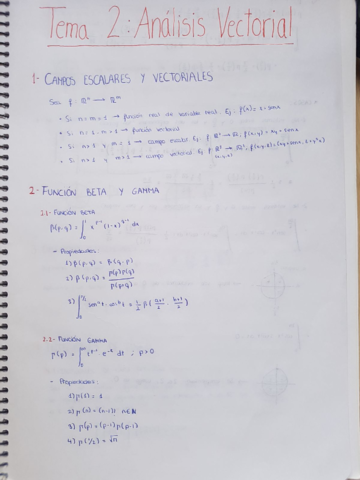 Tema 2: Análisis Vectorial
1- CAMPOS ESCALARES Y VECTORIALES
Sea f: ℝⁿ → ℝᵐ
• Si n=m=1 → función real de variable real. Ej: f(x)=x·senx
• Si n=1, m>1 → función vectorial
• Si n>1 y m=1 → campo escalar Ej: f: ℝ² → ℝ; f(x,y)=
• Si n>1 y m>1 → campo vectorial Ej: f:
2- FUNCIÓN BETA Y GAMMA
2.1- FUNCIÓN BETA
β(p,q) = ∫₀¹ x^(p-1) (1-x)^(q-1) dx
- Propiedades:
1) β(p,q) = β(q,p)
2) β(p,q) = Γ(p)Γ(q) / Γ(p+q)
3) ∫₀^(π/2) senᵃt · cosᵇt = 1/2 β(a+1/2, b+1/2)
2.2- FUNCIÓN GAMMA
Γ(p) = ∫₀^∞ t^(p-1) e^(-t) dt ; p>0
- Propiedades:
1) Γ(1) = 1
2) Γ(n) = (n-1)! n∈ℕ
3) Γ(p) = (p-1) Γ(p-1)
4) Γ(1/2) = √π